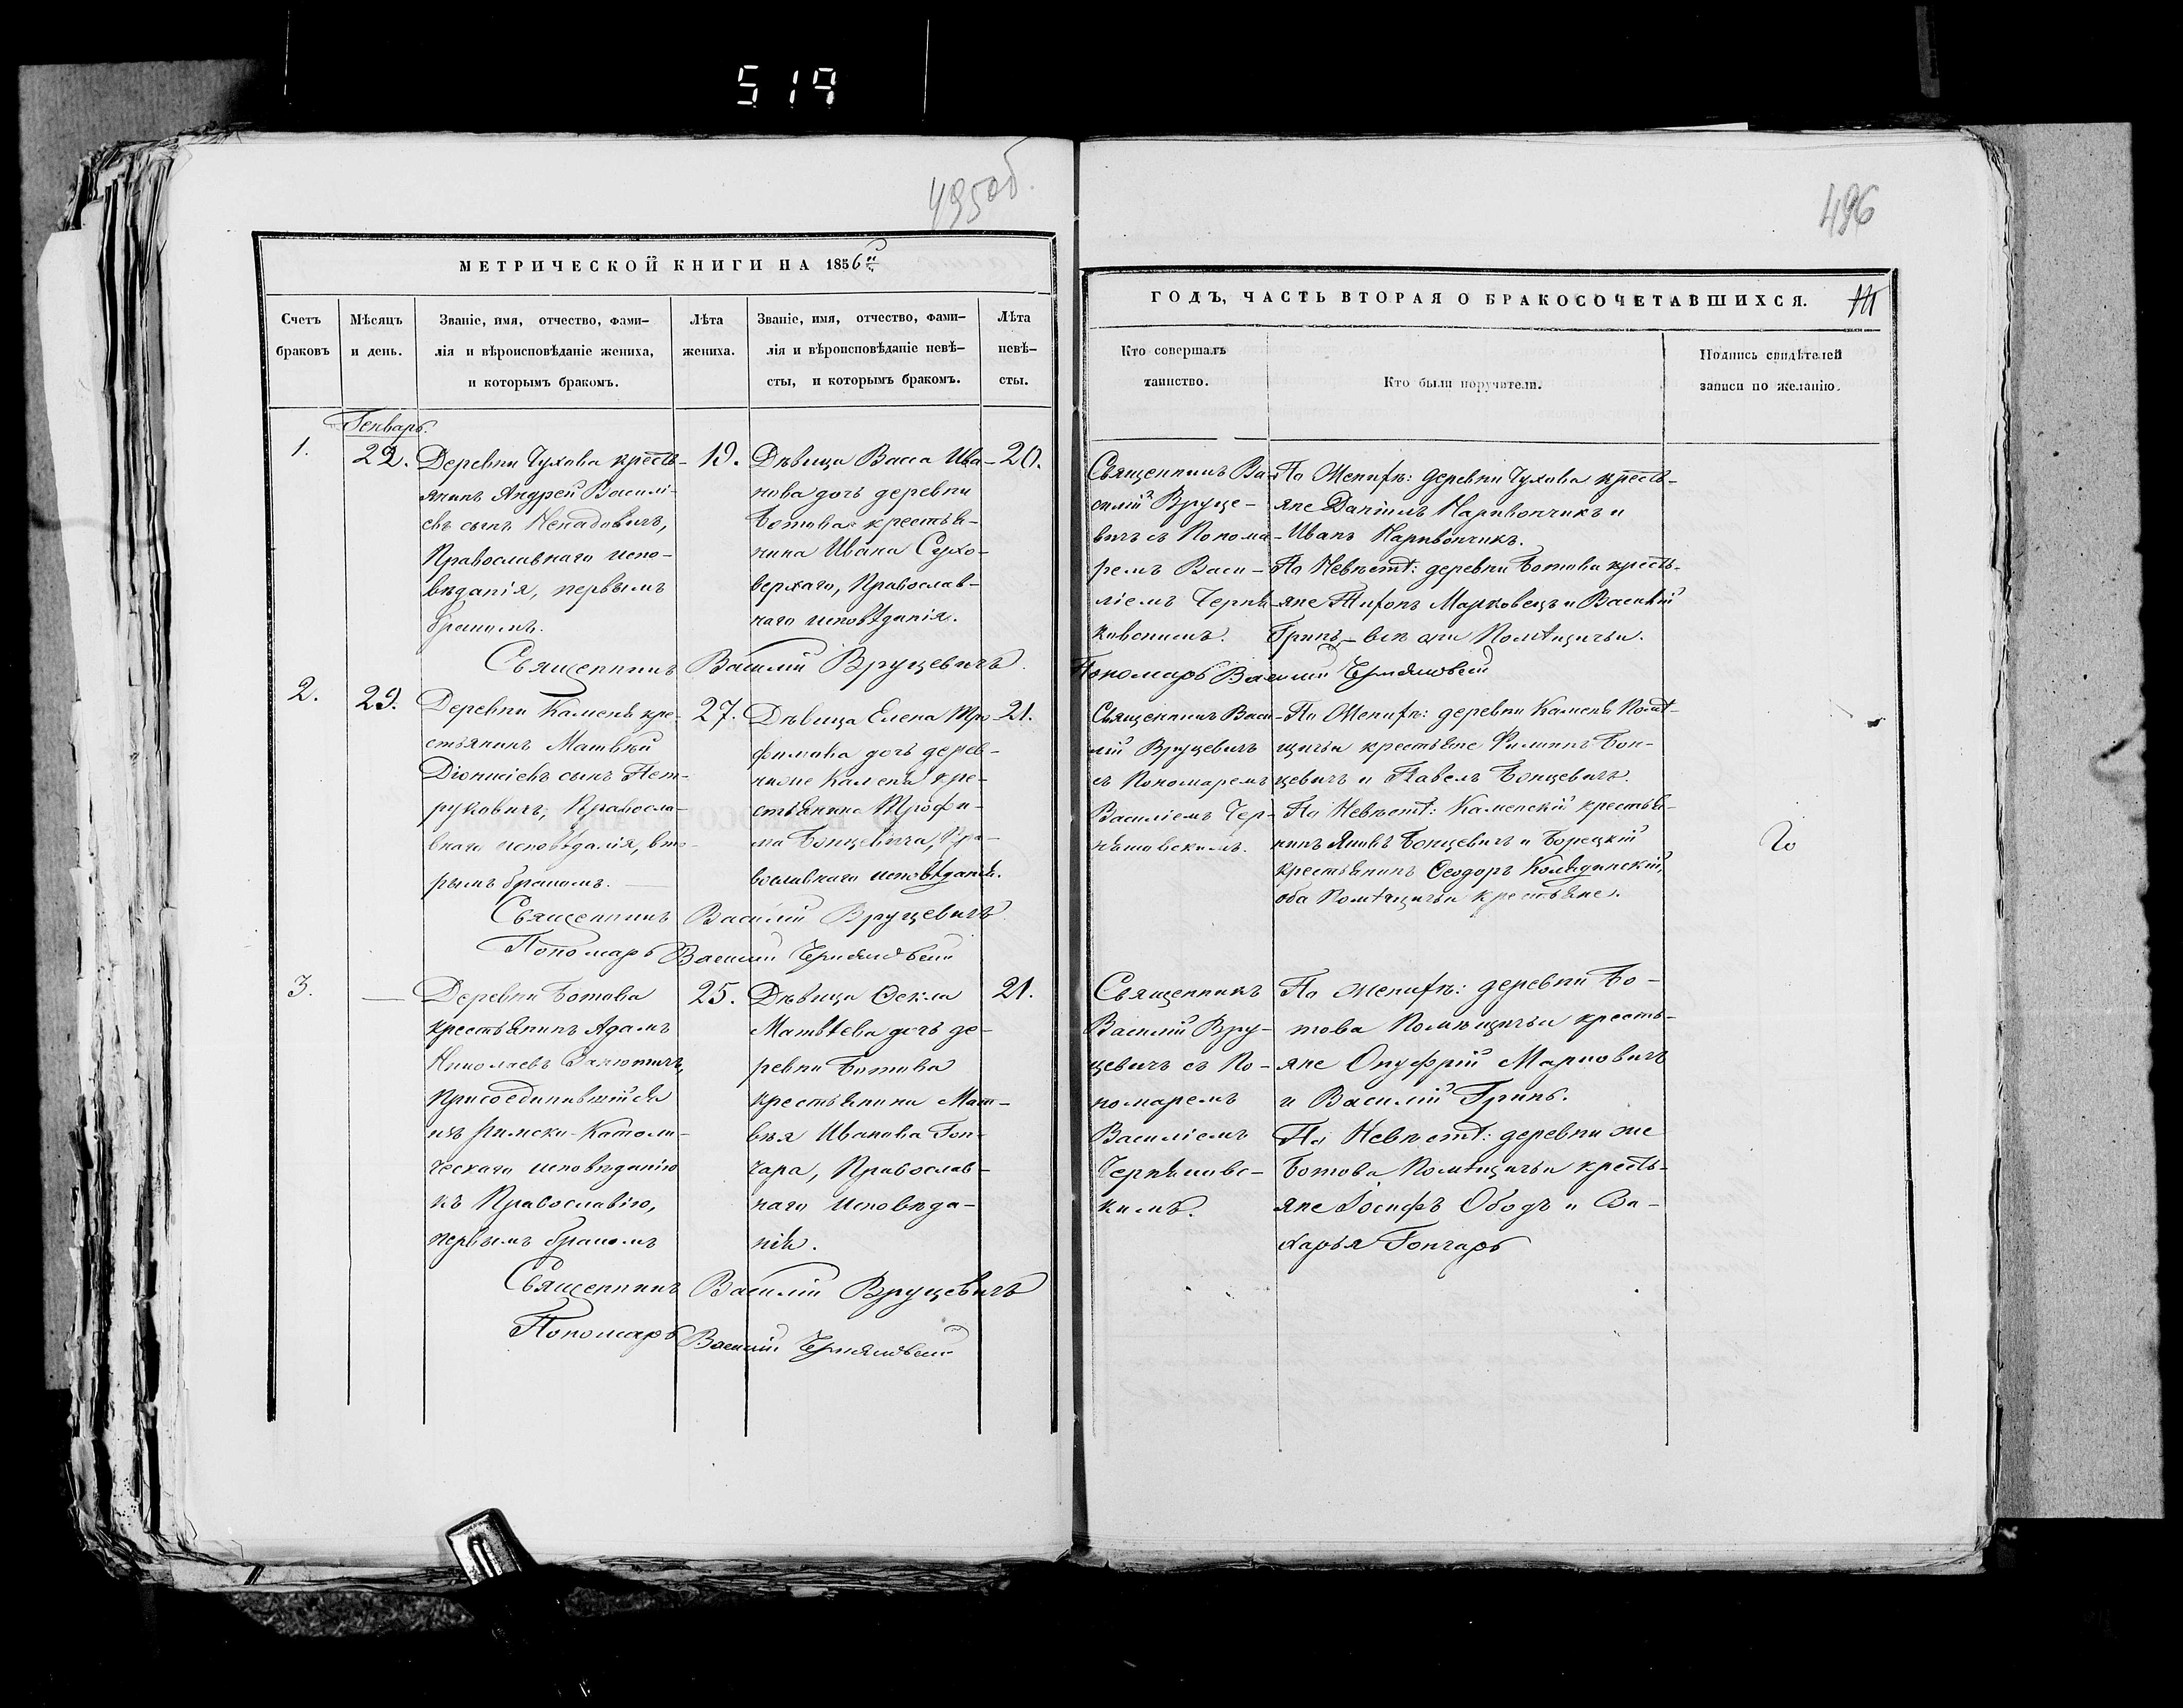 519
495об.
МЕТРИЧЕСКОЙ КНИГИ НА 1856й
Счетъ браковъ
Мѣсяцъ и день.
Званіе, имя, отчество, фами-
лія и вѣроисповѣданіе жениха,
и которымъ бракомъ.
Лѣта жениха.
Званіе, имя, отчество, фами-
лія и вѣроисповѣданіе невѣ-
сты, и которымъ бракомъ.
Лѣта невѣ-
сты.
Генварь.
1.
22.
Деревни Чухова кресть-
янинъ Андрей Василі-
евъ сынъ Ненадовичъ,
Православнаго испо-
вѣданія, первымъ
бракомъ.
19.
Дѣвица Васса Ива-
нова дочь деревни
Ботова крестья-
нина Ивана Сухо-
верхаго, Православ-
наго исповѣданія.
20.
Священникъ Василій Вруцевичъ.
2.
29.
Деревни Камень кре-
стьянинъ Матвѣй
Діонисіевъ сынъ Пет-
руковичъ, Правосла-
внаго исповѣданія, вто-
рымъ бракомъ.
27.
Дѣвица Елена Тро-
фимова дочь дерев-
ни же Камень кре-
стьянина Трофи-
ма Бонцевича, Пра-
вославнаго исповѣданія.
21.
Священникъ Василій Вруцевичъ
Пономарь Василій
3.
—
Деревни Ботова
крестьянинъ Адамъ
Николаевъ
Присоединившійся
изъ Римско-Католи-
ческаго исповѣданія
къ Православію,
первымъ бракомъ
25.
Дѣвица Ѳекла
Матвѣева дочь де-
ревни Ботова
крестьянина Мат-
вѣя Иванова Гон-
чара, Православ-
наго исповѣда-
нія.
21.
Священникъ Василій Вруцевичъ
Пономарь Василій
496
ГОДЪ, ЧАСТЬ ВТОРАЯ О БРАКОСОЧЕТАВШИХСЯ.
Кто совершалъ
таинство.
Кто были поручители.
Подпись свидѣтелей
записи по желанію.
Священникъ Ва-
силій Вруце-
вичъ съ Понома-
ремъ Васи-
ліемъ
По Женихѣ: деревни Чухова кресть-
яне Даніилъ Наривончикъ и
Иванъ Наривончикъ.
По Невѣстѣ: деревни Ботова кресть-
яне Тихонъ Марковецъ и Василій
Гринь – всѣ они Помѣщичьи.
Пономарь Василій
Священникъ Васи-
лій Вруцевичъ
съ Пономаремъ
Василіемъ
По Женихѣ: деревни Камень Помѣ-
щичьи крестьяне Филиппъ Бон-
цевичъ и Павелъ Бонцевичъ.
По Невѣстѣ: Каменскій крестья-
нинъ Яковъ Бонцевичъ и Борецкій
крестьянинъ Ѳеодоръ
оба Помѣщичьи крестьяне.
Священникъ
Василій Вру-
цевичъ съ По-
номаремъ
Василіемъ
По Женихѣ: деревни Бо-
това Помѣщичьи кресть-
яне Онуфрій Марковичъ
и Василій Гринь.
По Невѣстѣ: деревни же
Ботова Помѣщичьи кресть-
яне Іосифъ Ободъ и За-
харья Гончаръ